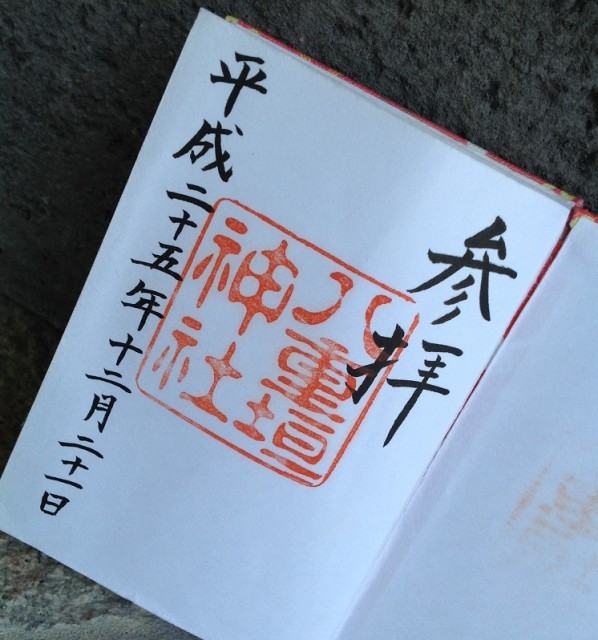 参拝
八重垣
神社
平成二十五年十二月二十一日